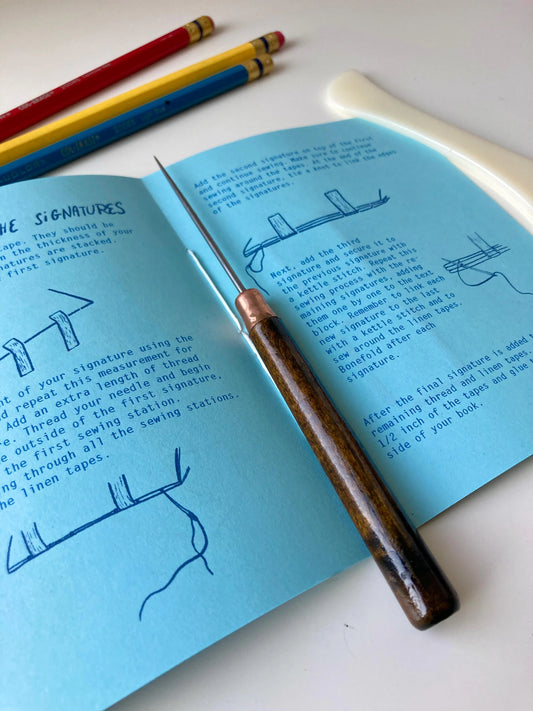 HE SIGNATURES
tape. They should be
n the thickness of your
natures are stacked.
first signature.
t of your signature using the
d repeat this measurement for
Add an extra length of thread
e. Thread your needle and begin
e outside of the first signature,
the first sewing station.
ng through all the sewing stations.
he linen tapes.
Add the second signature on top of the first
and continue sewing. Make sure to continue
sewing around the tapes. At the end of the
second signature, tie a knot to link the edges
of the signatures.
Next, add the third
signature and secure it to
the previous signature with
a kettle stitch. Repeat this
sewing process with the re-
maining signatures, adding
them one by one to the text
block. Remember to link each
new signature to the last
with a kettle stitch and to
sew around the linen tapes.
Bonefold after each
signature.
After the final signature is added
remaining thread and linen tape.
1/2 inch of the tapes and glue
side of your book.